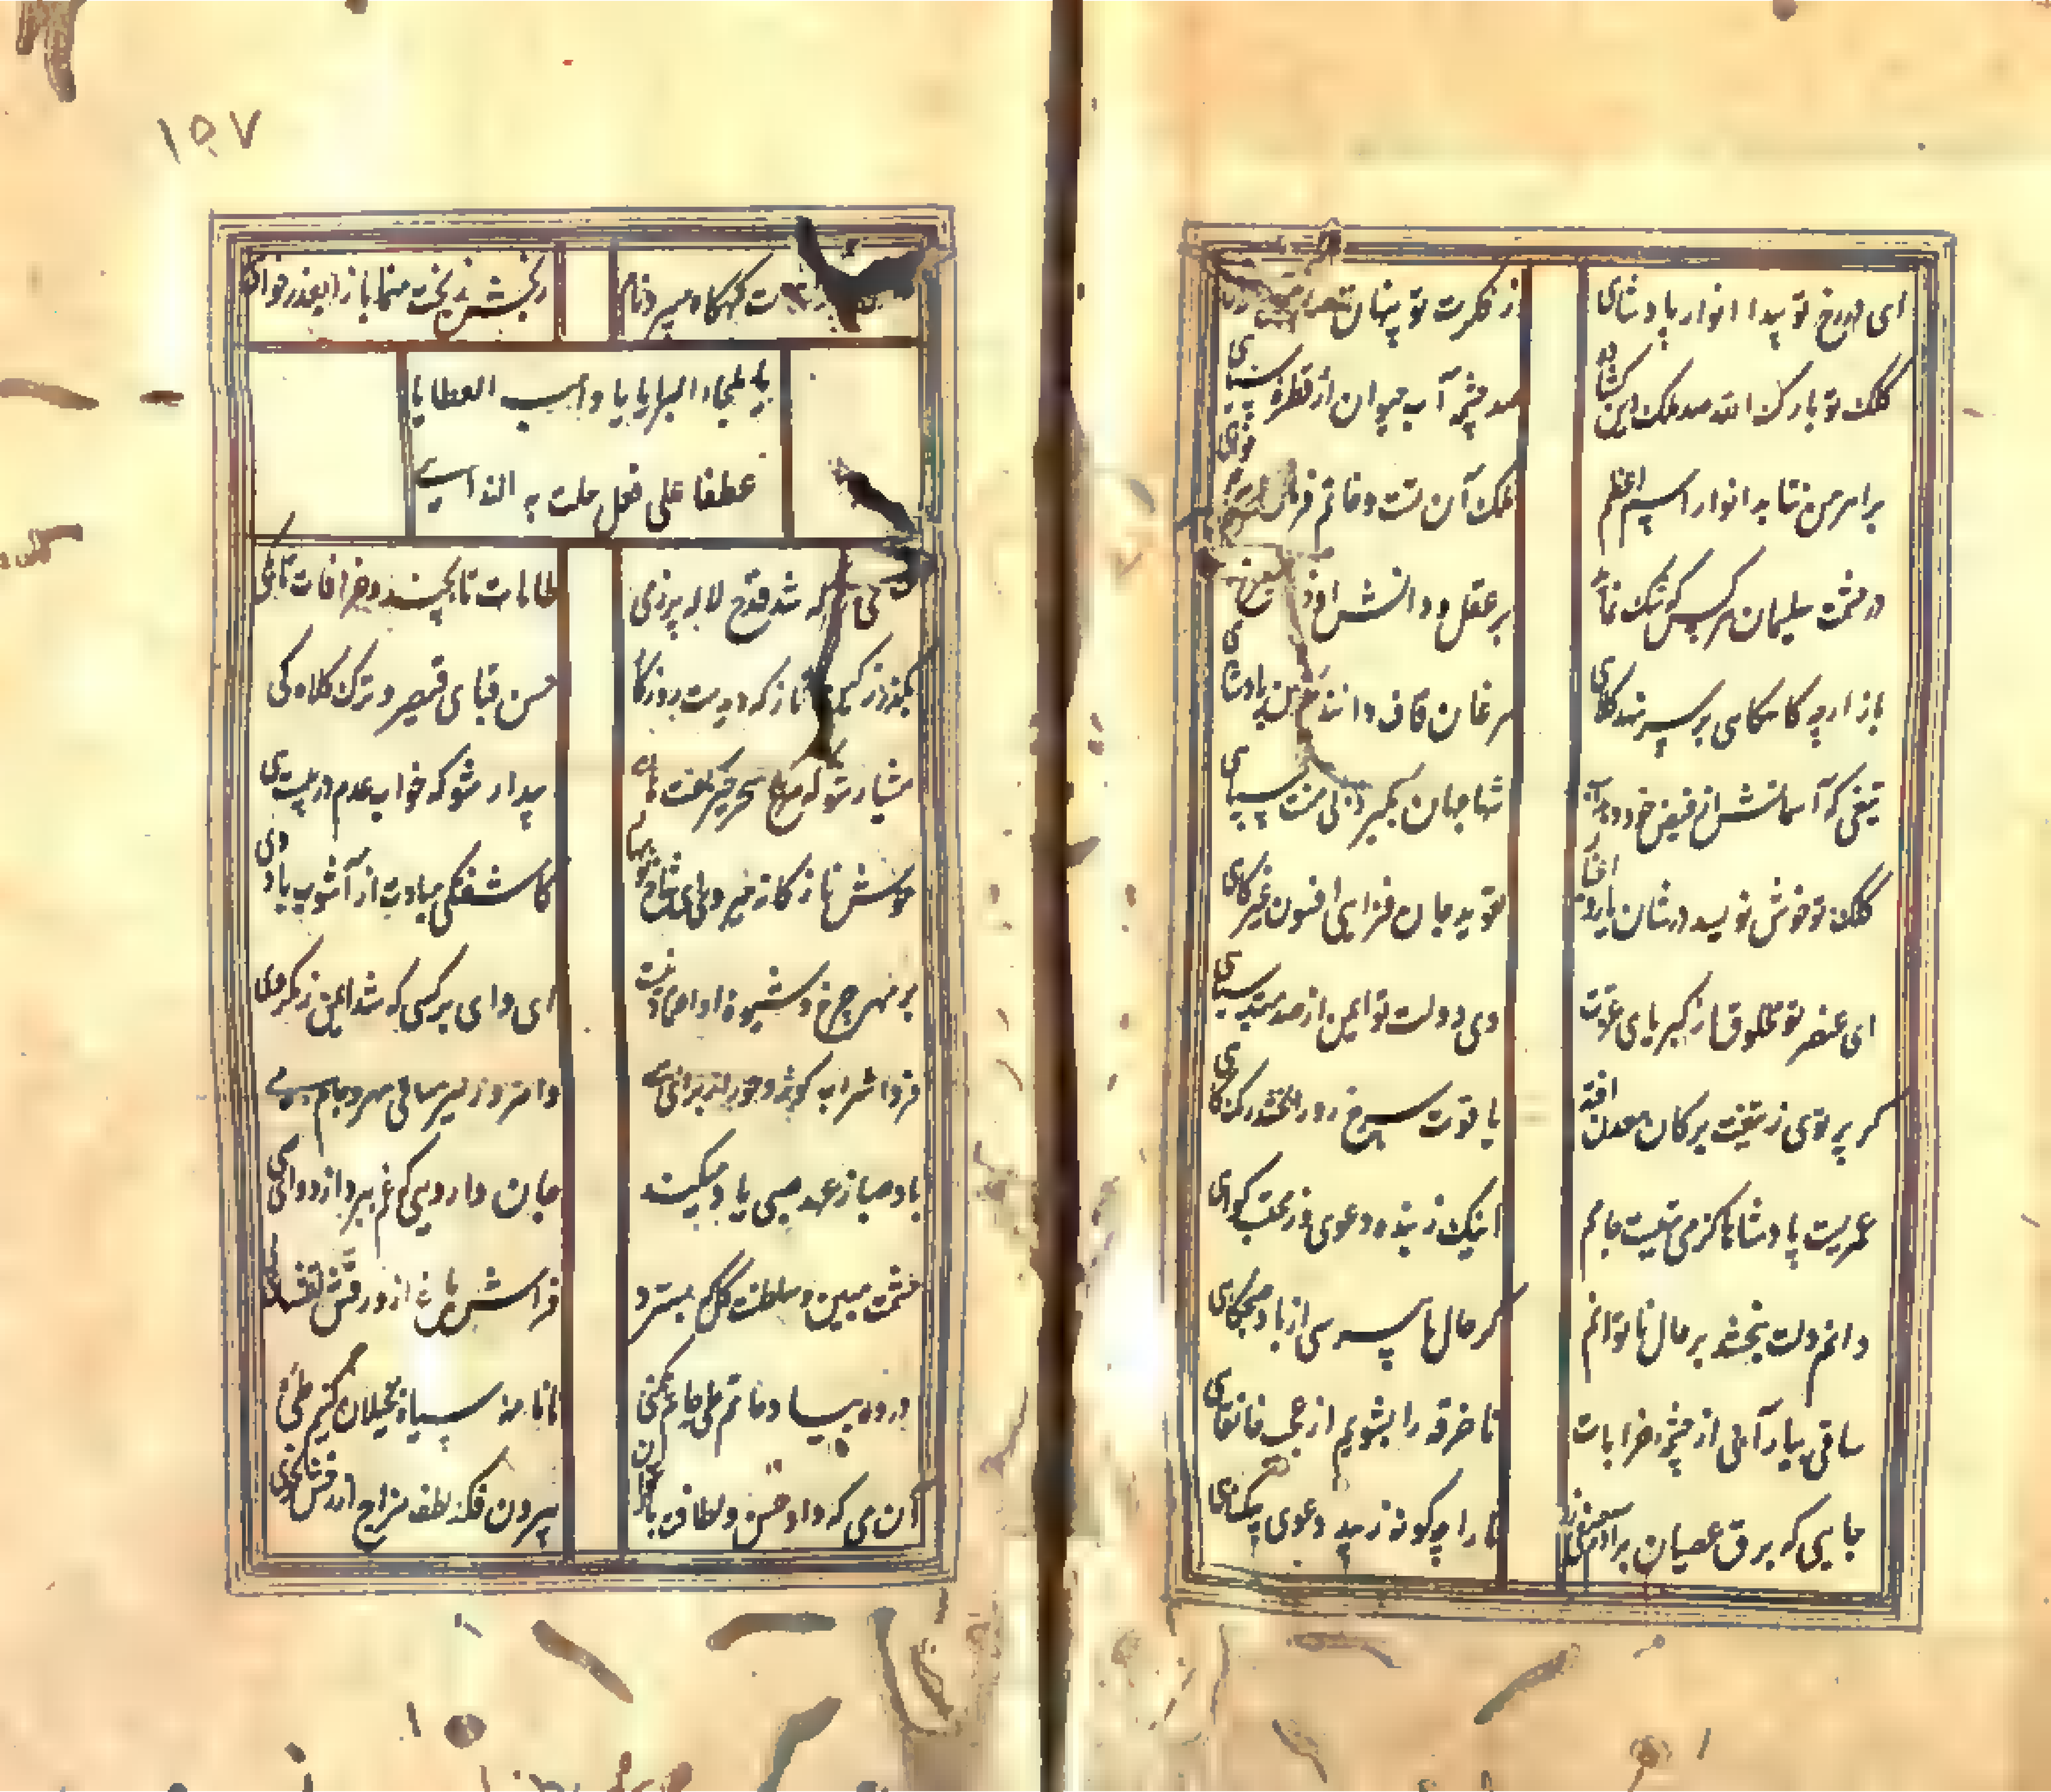 ای در رخ تو پیدا انوار پادشاهی
در فکرت تو پنهان
کلک تو بارک الله صد ملک این کشاده
صد چشمه آب حیوان از قطره سیاهی
بر اهرمن نتابد انوار اسم اعظم
ملک آن تست و خاتم
در حشمت سلیمان هر کس که شک نماید
بر عقل و دانش او
باز ارچه گاهگاهی بر سر نهد کلاهی
مرغان قاف دانند آیین پادشاهی
تیغی که آسمانش از فیض خود دهد آب
تنها جهان بگیرد بی منت سپاهی
کلک تو خوش نویسد در شان یار و اغیار
تعویذ جان فزایی افسون عمر کاهی
ای عنصر تو مخلوق از کبریای عزت
وی دولت تو ایمن از صدمت تباهی
گر پرتوی ز تیغت بر کان و معدن افتد
یاقوت سرخ رو را بخشد رنگ کاهی
عمریست پادشاها کز می تهیست جامم
اینک ز بنده دعوی وز محتسب گواهی
دانم دلت ببخشد بر حال ناتوانم
گر حال ما بپرسی از باد صبحگاهی
ساقی بیار آبی از چشمه خرابات
تا خرقه را بشویم از عجب خانقاهی
جایی که برق عصیان بر آدم صفی زد
ما را چگونه زیبد دعوی بیگناهی
۱۵۷
گهگاه میبرد نام
رنجش ز بخت منما باز آ بعذر خواهی
یا ملجاء البرایا یا واهب العطایا
عطفا علی مقل حلت به الدواهی
که شد قدح لاله پر ز می
طامات تا بچند و خرافات تا بکی
بگذر ز کبر و ناز که دیدست روزگار
حسن قبای قیصر و ترک کلاه کی
هشیار شو که مرغ سحر خیز گفت هان
بیدار شو که خواب عدم در پیست هی
خوش نازکانه میچمی ای شاخ نوبهار
کاشفتگی مبادت از آشوب باد دی
بر مهر چرخ و شیوه او اعتماد نیست
ای وای بر کسی که شد ایمن ز مکر وی
فردا شراب کوثر و حور از برای ماست
وامروز نیز ساقی مهرو و جام می
باد صبا ز عهد صبی یاد میکند
جان دارویی که غم ببرد در ده ای صبی
حشمت مبین و سلطنت گل که بسترد
فراش باغ هر ورقش
در ده بیاد حاتم طی جام یک منی
تا نامه سیاه بخیلان کنیم طی
آن می که داد حسن و لطافت بارغوان
بیرون فکند لطف مزاج از رخش بخوی